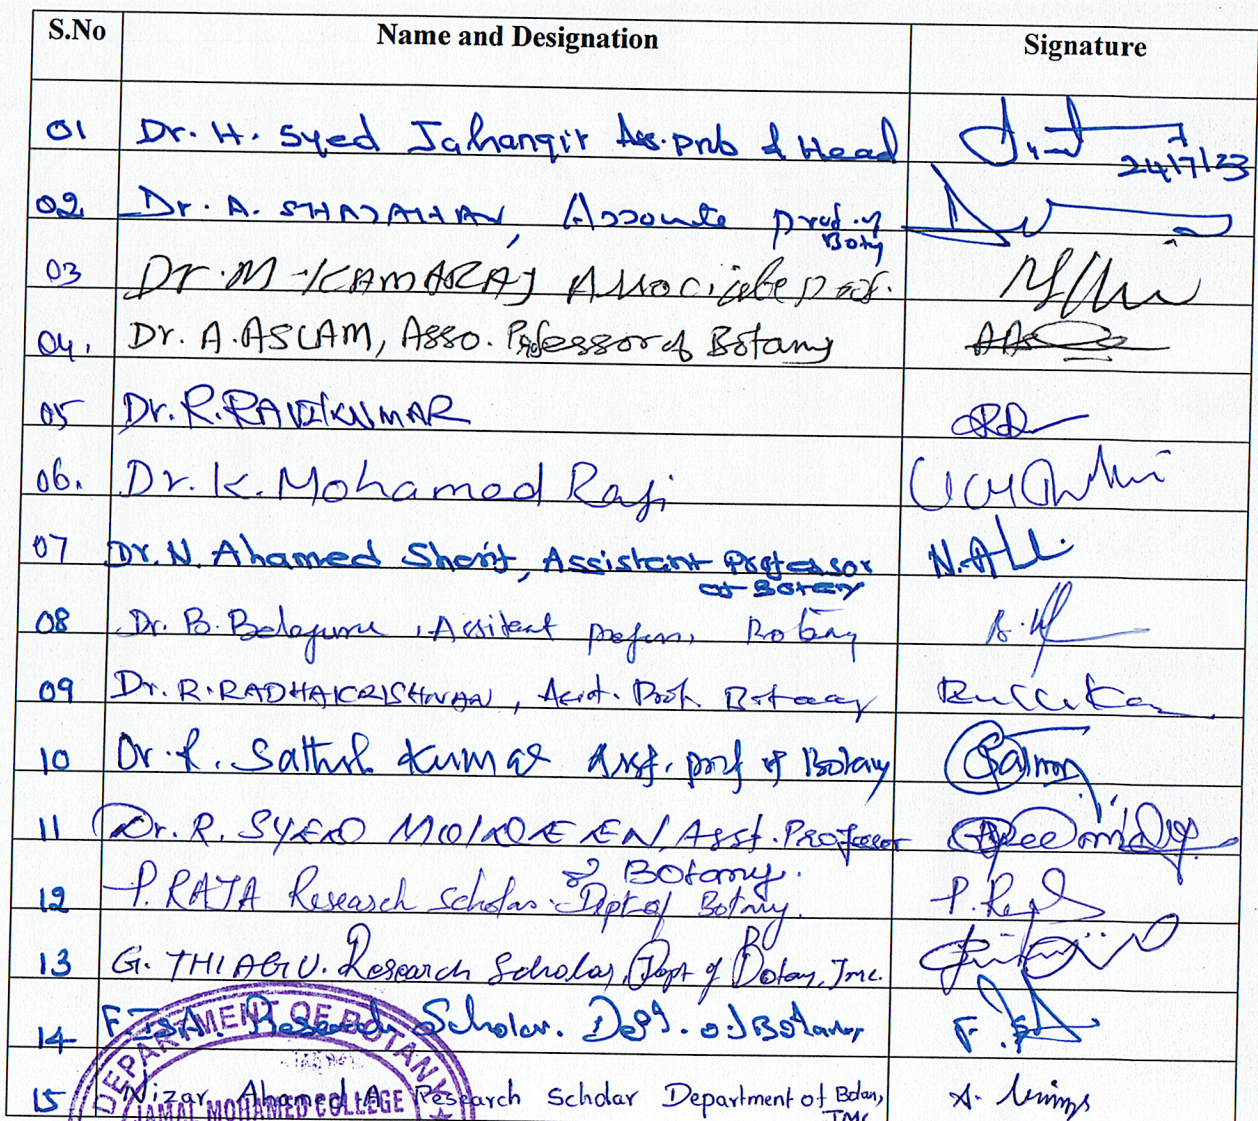 S.No Name and Designation Signature
01 Dr. H. Syed Jahangir Ass. prob & Head
24/7/23
02 Dr. A. SHAJAHAN, Associate prof. of
Botany
03 Dr. M. KAMARAJ Associate prof.
04. Dr. A. ASLAM, Asso. Professor of Botany
05 Dr. R. RAVIKUMAR
06. Dr. K. Mohamed Rafi
07 Dr. N. Ahamed Sherif, Assistant Professor N. All
of Botany
08 Dr. B. Balaguru, Assistant professor, Botany
09 Dr. R. RADHAKRISHNAN, Asst. Prof. Botany
10 Dr. R. Sathish Kumar Asst. prof of Botany
11 Dr. R. SYED MOINDEEN, Asst. Professor
of Botany.
12 P. RAJA Research Scholar. Dept of Botany. P. Raja
13 G. THIAGU. Research Scholar, Dept of Botany, JMC.
14 Research Scholar. Dept. of Botany
15 Nizar Ahamed A Research Scholar Department of Botany,
JMC
DEPARTMENT OF BOTANY
JAMAL MOHAMED COLLEGE